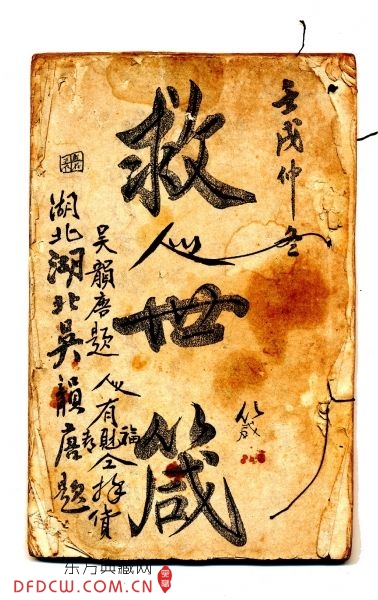 壬戌仲冬
救世箴
人心
箴
吴韻唐题
人心有
福
湖北湖北吴韻唐题
东方典藏网
DFDCW.COM.CN